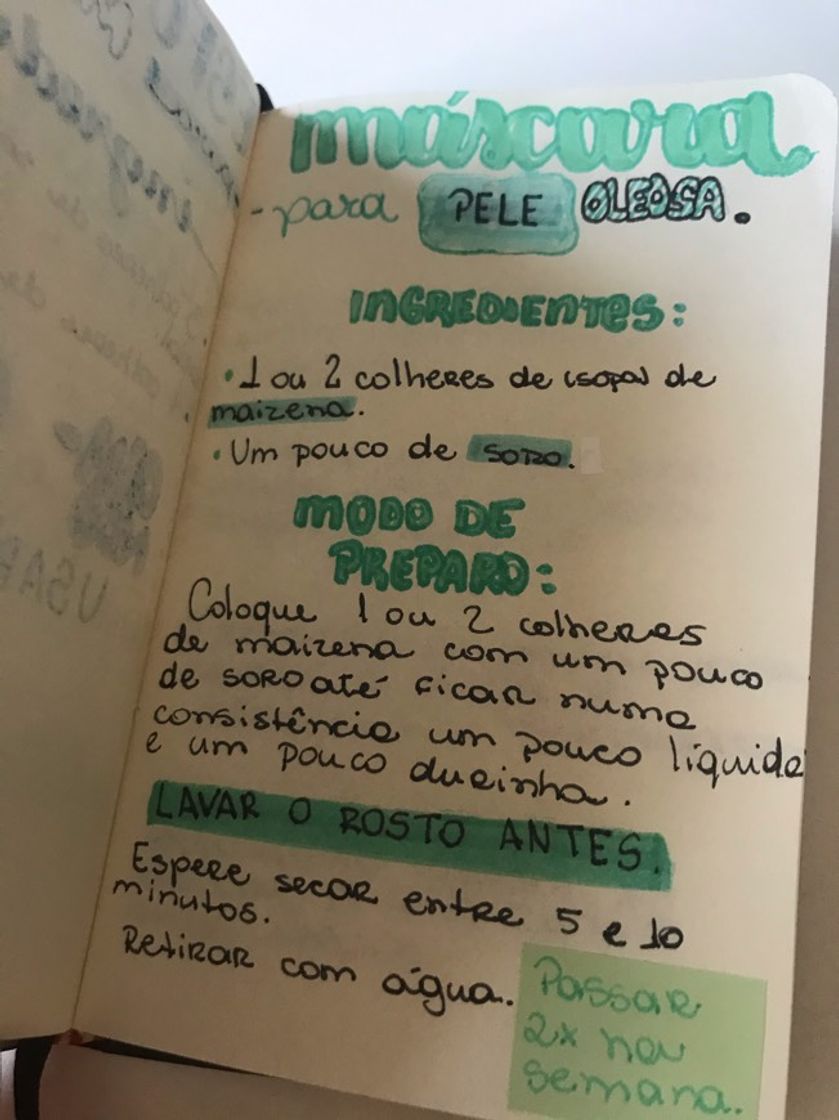 máscara
- para PELE OLEOSA.
INGREDIENTES:
• 1 ou 2 colheres de (sopa) de
maizena.
• Um pouco de soro.
MODO DE
PREPARO:
Coloque 1 ou 2 colheres
de maizena com um pouco
de soro até ficar numa
consistência um pouco líquida
e um pouco durinha.
LAVAR O ROSTO ANTES.
Espere secar entre 5 e 10
minutos.
Retirar com água.
Passar
2x na
semana.